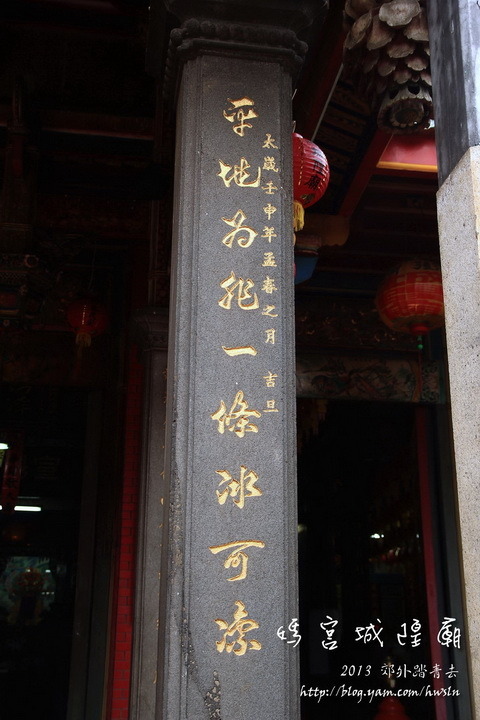 太歲壬申年孟春之月 吉旦
平地為非一條冰可凛
媽宮城隍廟
2013 郊外踏青去
http://blog.yam.com/hwsln